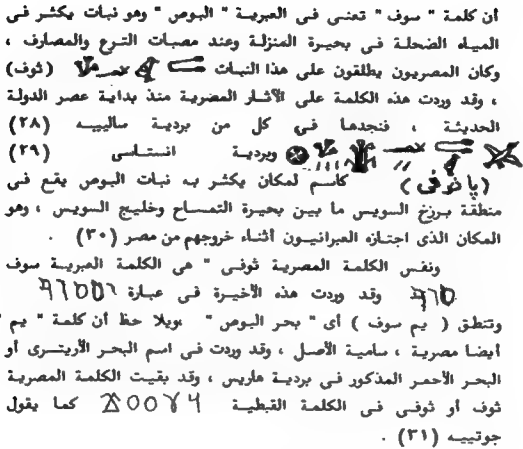 أن كلمة " سوف " تعنى فى العبرية " البوص " وهو نبات يكثر فى
المياه الضحلة فى بحيرة المنزلة وعند مصبات الترع والمصارف ،
وكان المصريون يطلقون على هذا النبات (ثوف)
، وقد وردت هذه الكلمة على الأثار المصرية منذ بداية عصر الدولة
الحديثة ، فنجدها فى كل من بردية سالييه (٢٨)
وبردية انستاسى (٢٩)
(پا ثوفى) كاسم لمكان يكثر به نبات البوص يقع فى
منطقة برزخ السويس ما بين بحيرة التمساح وخليج السويس ، وهو
المكان الذى اجتازه العبرانيون أثناء خروجهم من مصر (٣٠) .
ونفس الكلمة المصرية ثوفى " هى الكلمة العبرية سوف
وقد وردت هذه الأخيرة فى عبارة
وتنطق ( يم سوف ) أى " بحر البوص " ،ويلا حظ أن كلمة " يم "
أيضا مصرية ، سامية الأصل ، وقد وردت فى اسم البحر الأريترى أو
البحر الأحمر المذكور فى بردية هاريس ، وقد بقيت الكلمة المصرية
ثوف أو ثوفى فى الكلمة القبطية كما يقول
جوتييه (٣١) .